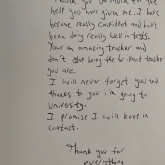 Thank you so much for the
help you have given me. I have
become really confident and have
been doing really well in tests.
Your an amazing teacher and
don't stop being the brilliant teacher
you are.
I will never forget you and
thanks to you i'm going to
University.
I promise I will keep in
contact.
Thank you for
everything